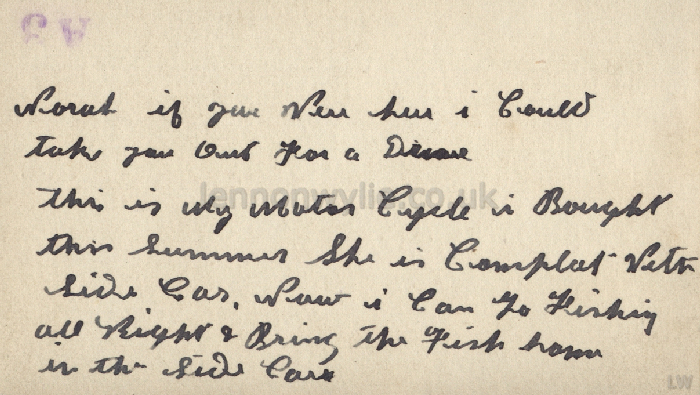 Norah if you Were here i Could
take you Out For a Drive
this is My Motor Cycle i Bought
this Summer She is Complat With
Side Car. Now i Can Go Fishing
all Right & Bring the Fish home
in the Side Care
lennonwylie.co.uk
LW